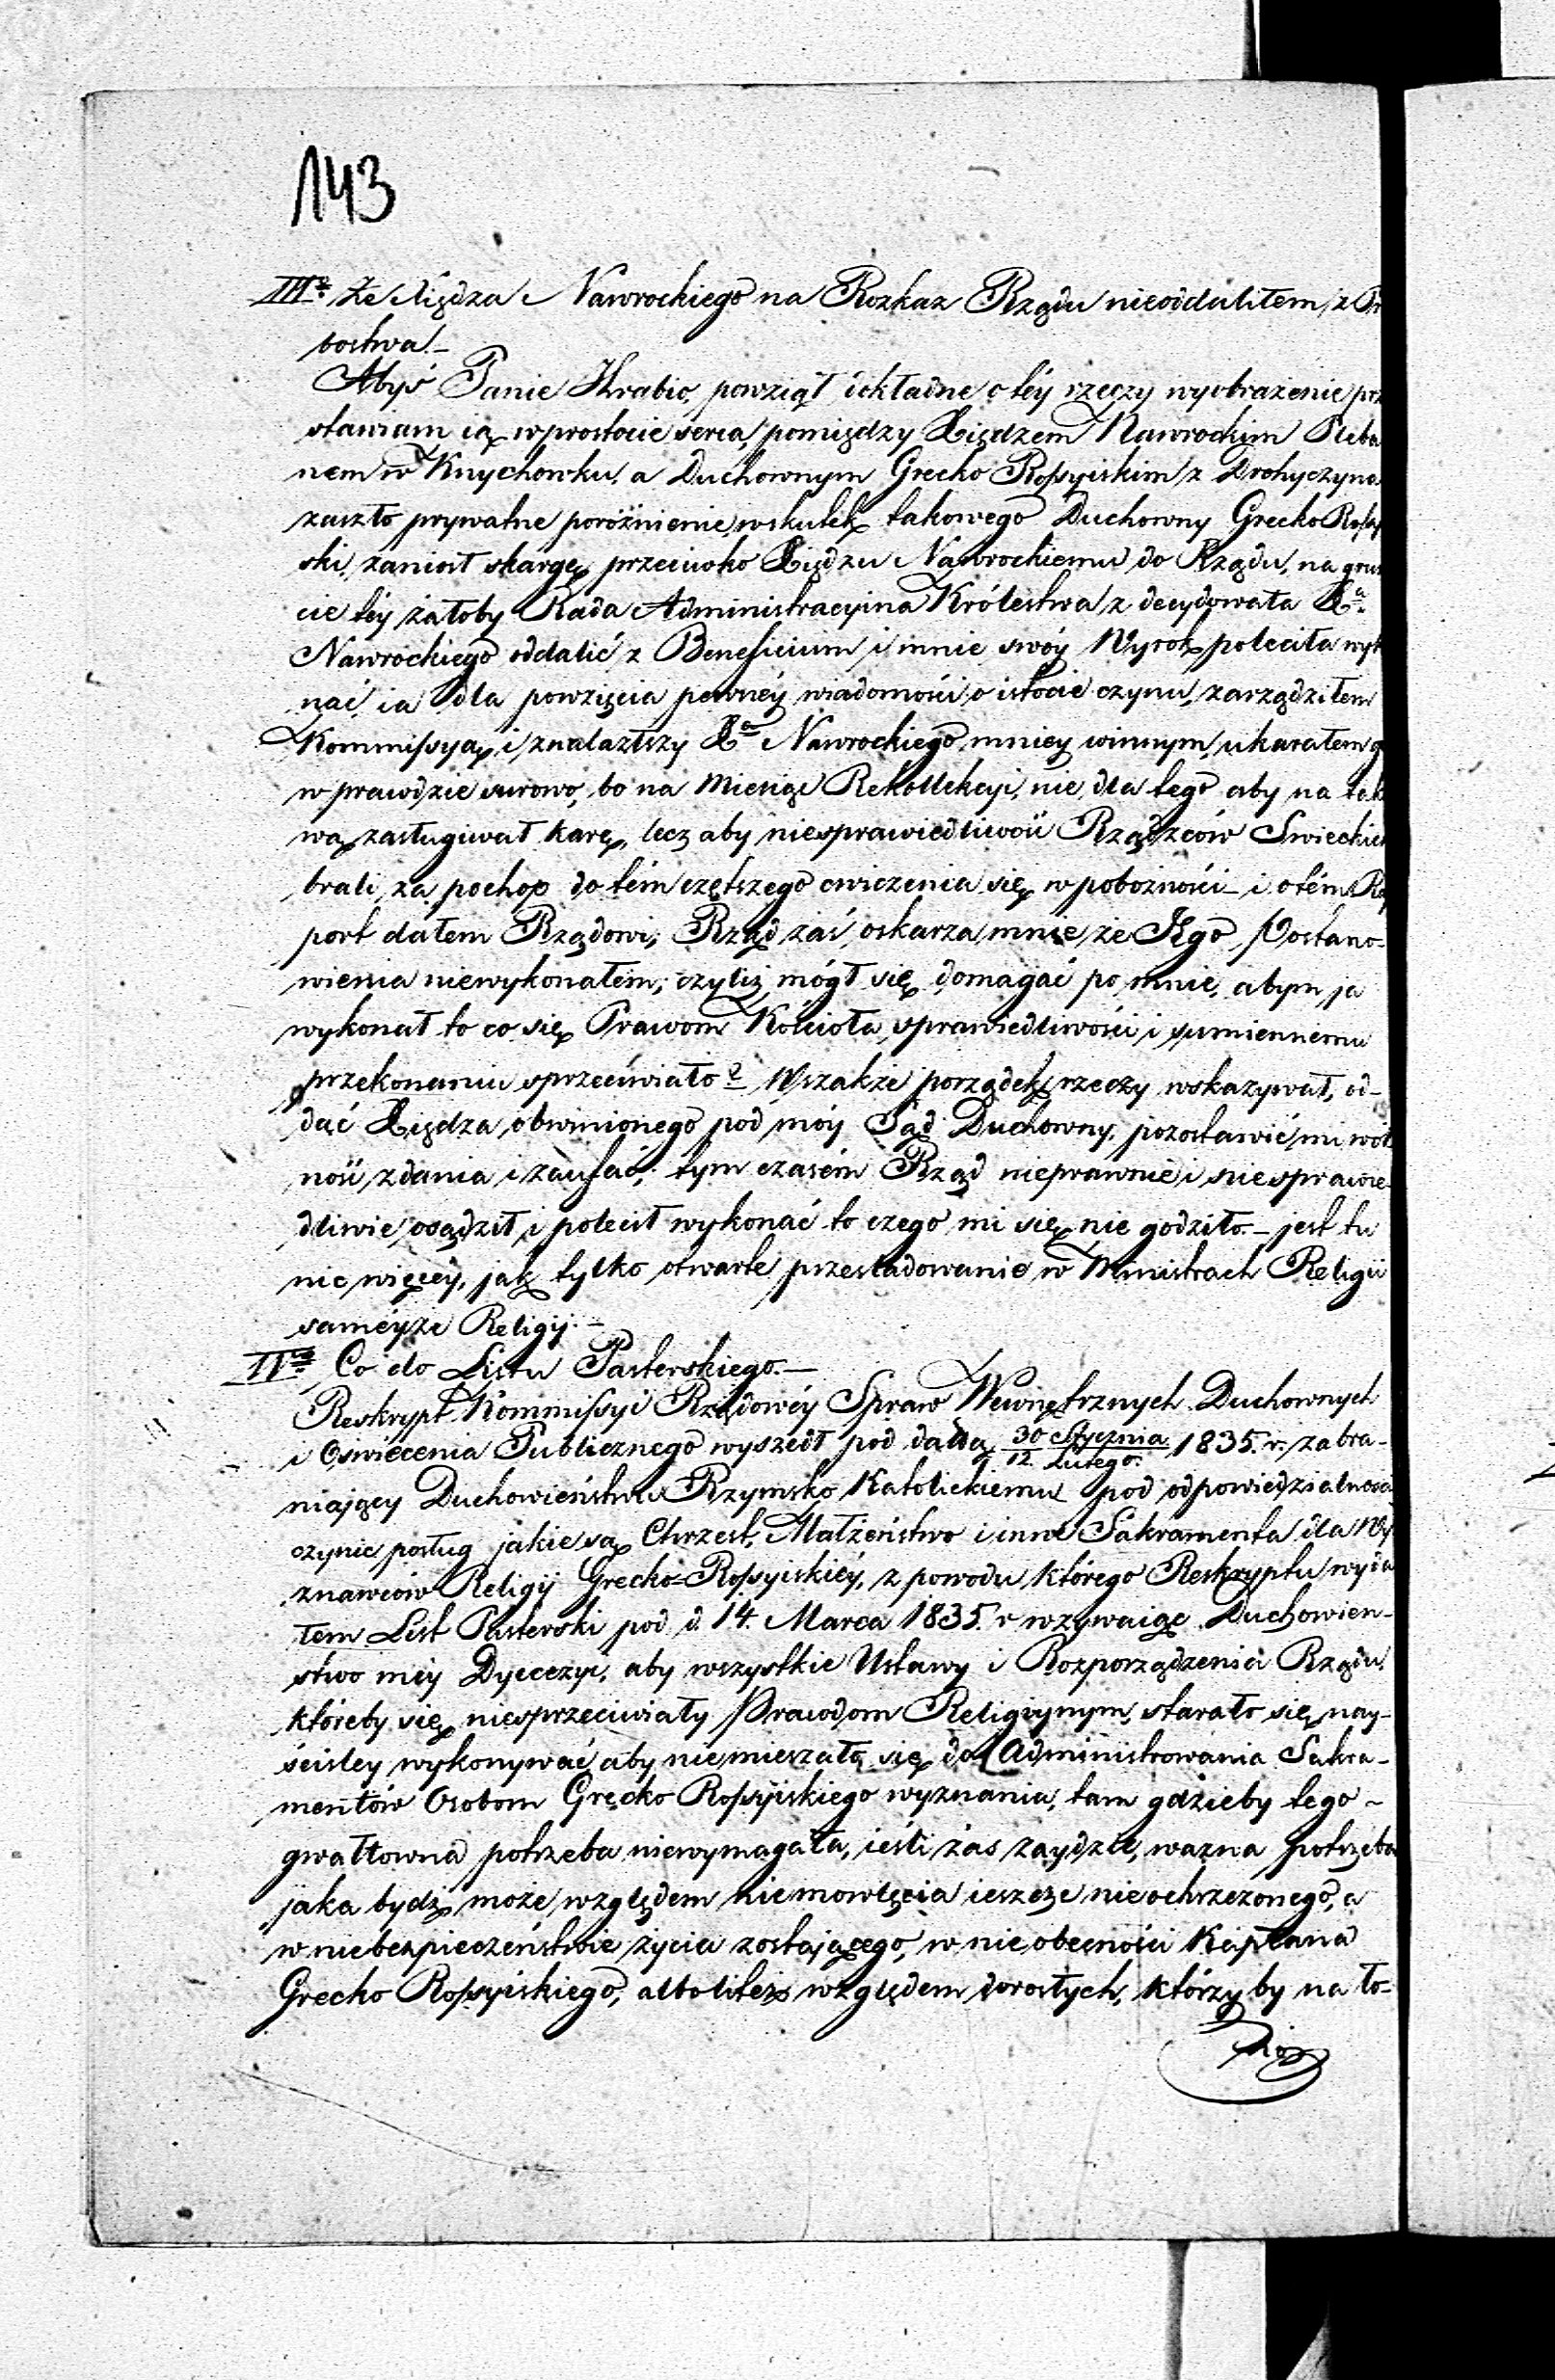 143
III<sup>o</sup> Że Xiędza Nawrockiego na Rozkaz Rządu nieoddaliłem z Pr
bostwa.—
Abyś Panie Hrabio, powziął dokładne o téy rzeczy wyobrażenie prz
stawiam ią w prostocie serca, pomiędzy Xiędzem Nawrockim Pleba
nem w Knychowku, a Duchownym Grecko Rossyiskim z Drohyczyna
zaszło prywatne poróżnienie, wskutek takowego Duchowny Grecko Rossy
ski, zaniosł skargę przeciwko Xiędzu Nawrockiemu do Rządu, na grun
cie téy żałoby Rada Administracyina Królestwa zdecydowała X<sup>a</sup>
Nawrockiego oddalić z Beneficium i mnie swóy Wyrok poleciła wyk
nać, ia dla powzięcia pewnéy wiadomości o istocie czynu, zarządziłem
Kommissyą, i znalazłszy X<sup>a</sup> Nawrockiego, mniey winnym, ukarałem g
w prawdzie surowo, bo na miesiąc Rekollekcyi, nie dla tego aby na tak
wą zasługiwał karę, lecz aby niesprawiedliwość Rządzców Swieckich
brali za pochop do tém częstszego cwiczenia się w pobożności — i o tém Ra
port dałem Rządowi; Rząd zaś oskarza mnie że Jego Postano-
wienia niewykonałem; czyliż mógł się domagać po mnie, abym ja
wykonał to co się Prawom Kościoła, sprawiedliwości i sumiennemu
przekonaniu sprzeciwiało? Wszakże porządek rzeczy wskazywał, od-
dać Xiędza obwinionego pod móy Sąd Duchowny, pozostawić mi wol
ność zdania i zaufać; tym czasém Rząd nieprawnie i niesprawie-
dliwie osądził i polecił wykonać to czego mi się nie godziło.— jest tu
nic więcéy, jak tylko otwarte prześladowanie w Ministrach Religii
saméyże Religij.—
IV<sup>to</sup> Co do Listu Pasterskiego.—
Reskrypt Kommissyi Rządowéy Spraw Wewnętrznych Duchownych
i Oświecenia Publicznego wyszedł pod datą 30 Stycznia / 12. Lutego. 1835. r. zabra-
niający Duchowieństwu Rzymsko Katolickiemu pod odpowiedzialnością
czynić posług jakie są Chrzest, Małżeństwo i inne Sakramenta dla Wy
znawców Religij Grecko-Rossyiskiéy, z powodu którego Reskryptu wyda
łem List Pasterski pod d. 14. Marca 1835. r wzywaiąc Duchowien-
stwo méy Dyecezyi, aby wszystkie Ustawy i Rozporządzenia Rządu,
któreby się niesprzeciwiały Prawdom Religiynym, starało się nay-
ściśley wykonywać, aby niemieszało się do Administrowania Sakra-
mentów Osobom Grecko Rossyiskiego wyznania, tam gdzieby tego
gwałtowna potrzeba niewymagała, ieśli zaś zaydzie, ważna potrzeba
jaka bydź może względem niemowlęcia ieszcze nieochrzczonego, a
w niebezpieczeństwie życia zostającego, w nieobecności Kapłana
Grecko Rossyiskiego, albo liteż względem dorosłych, którzyby na ło-